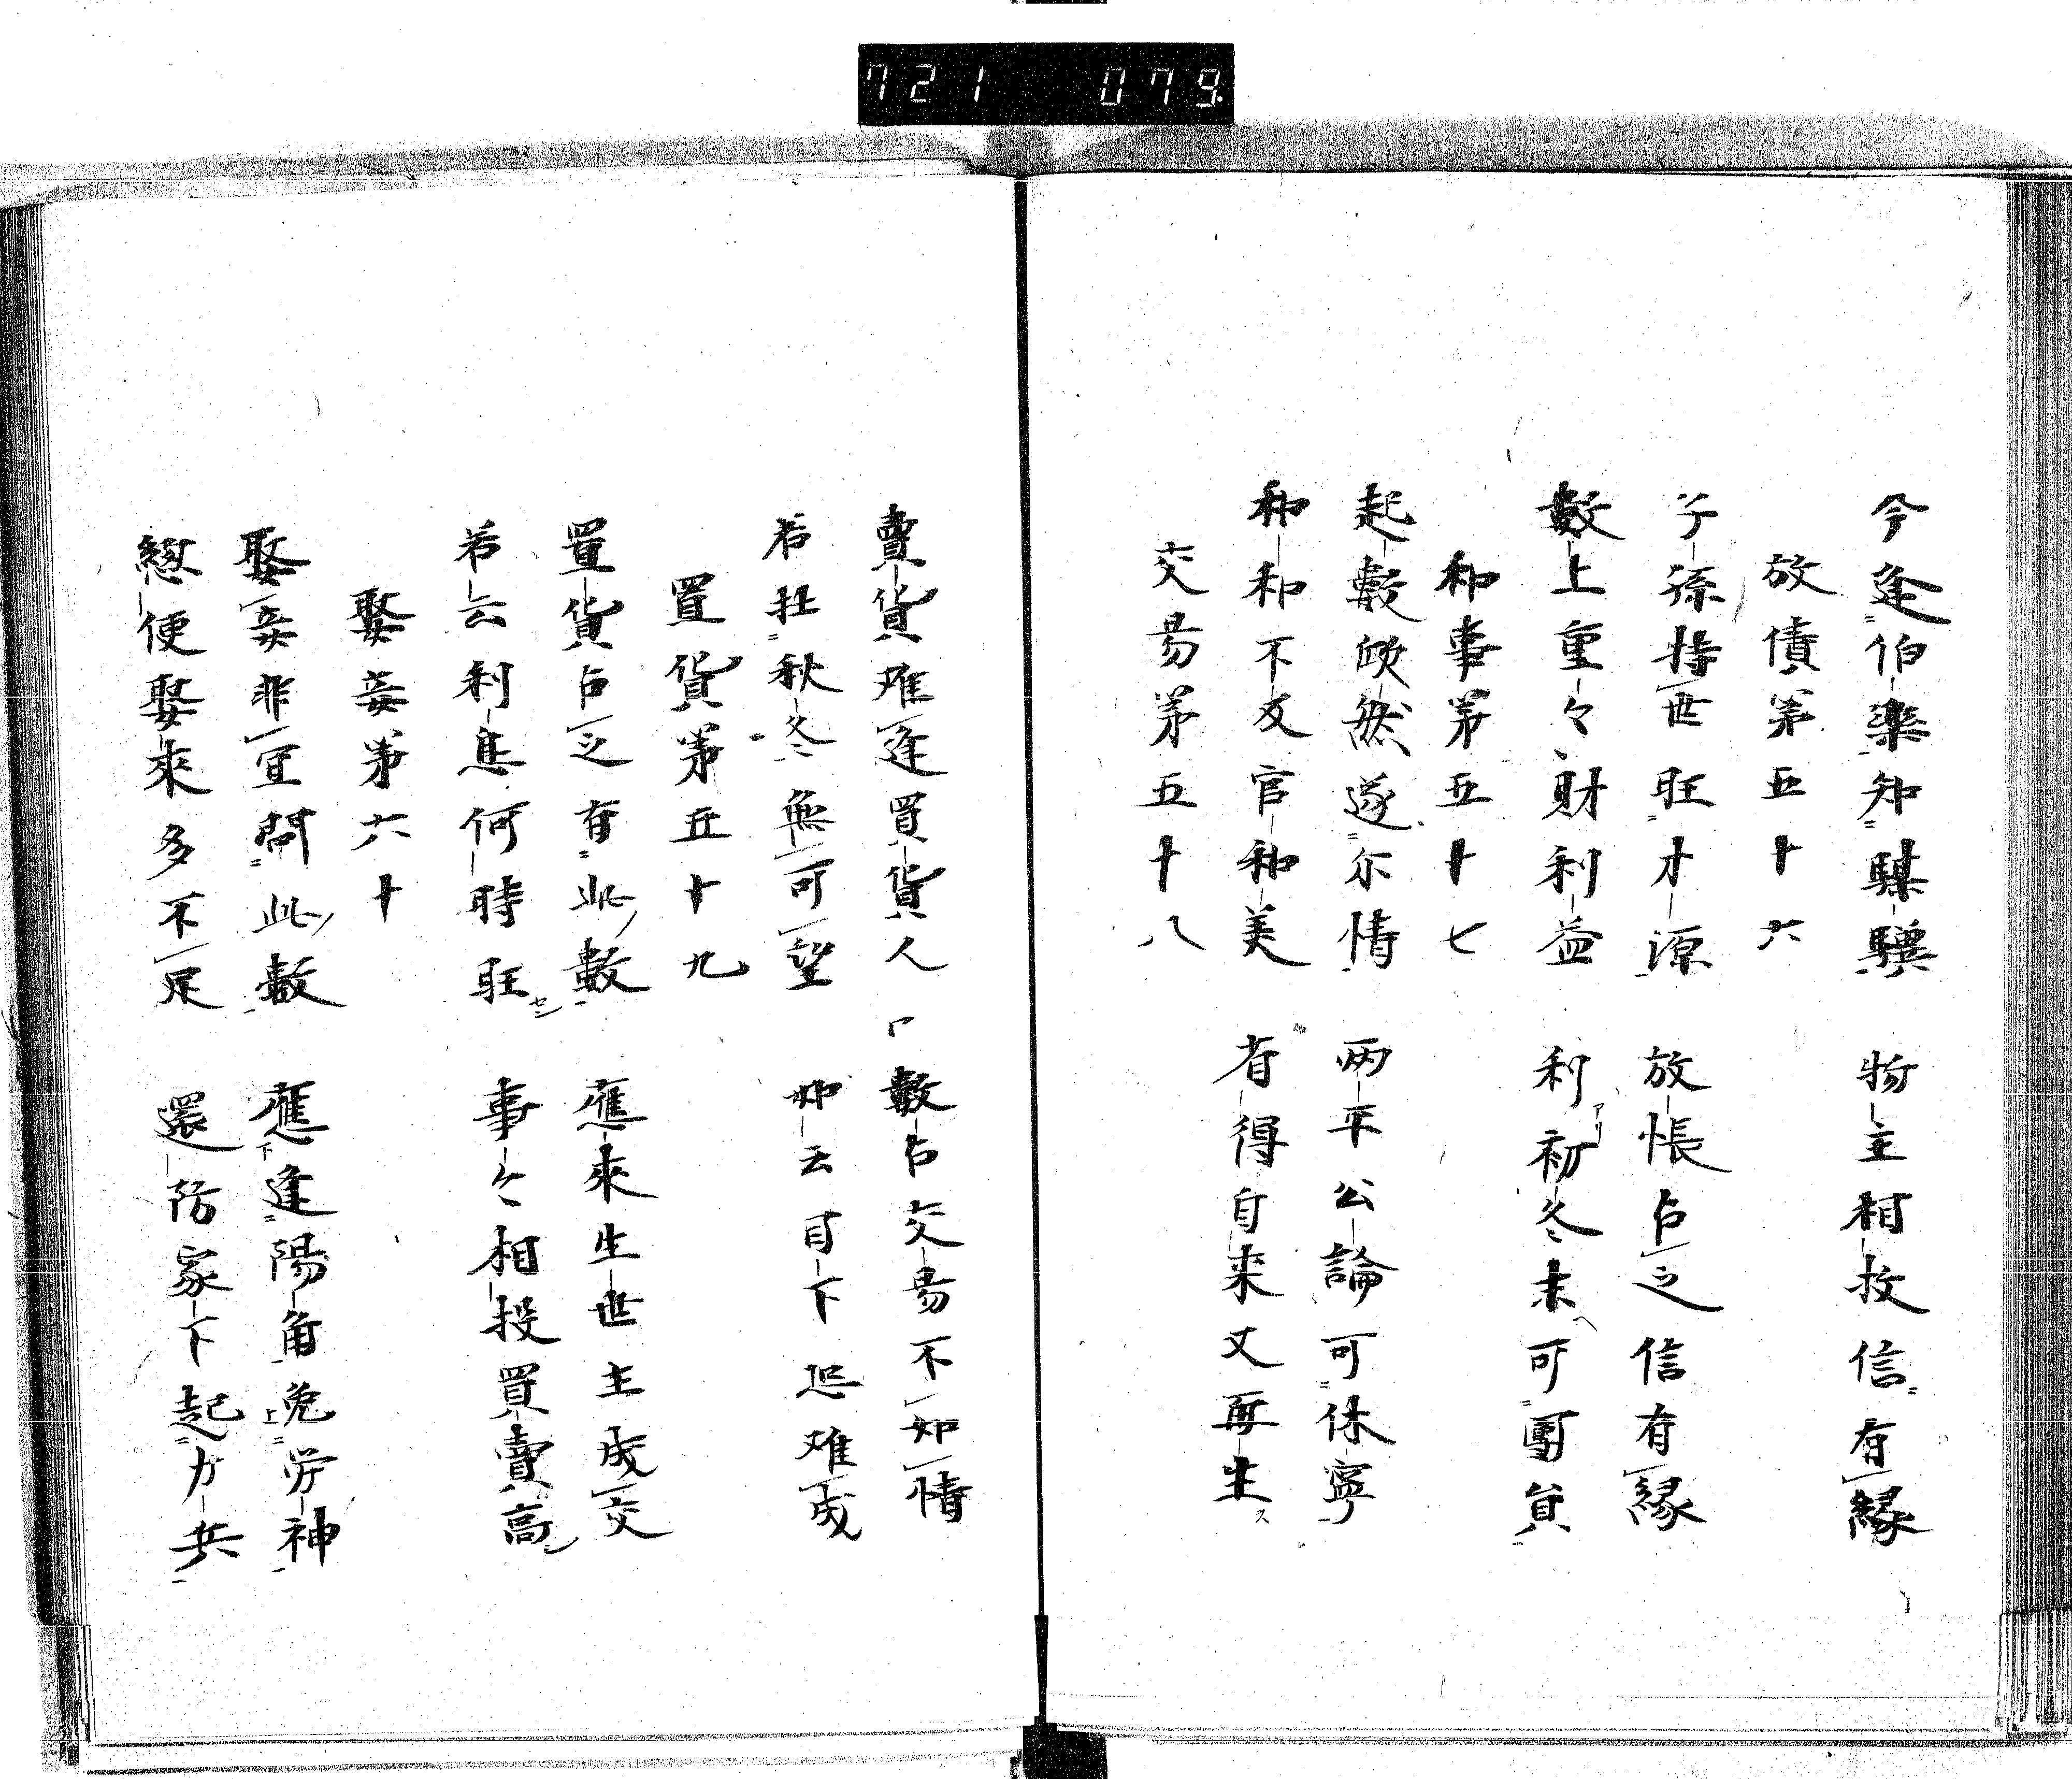 721 079.
今逢伯楽知騏驥 物主相投信有縁
放債第五十六
子孫持世旺才源 放悵占之信有縁
数上重々財利益 利初冬末可團貟
和事第五十七
起數欣然遂尓情 両平公論可休寧
和和不及官和美 有得自来又再生
交易第五十八
賣貨难逢買貨人 數占交易不如情
若在秋冬無可望 如云目下恐难成
置貨第五十九
置貨占之有此數 應來生世主成交
若云利息何時旺 事々相投買賣高
娶妾第六十
娶妾非宜問此數 應逢陽角免労神
縂便娶來多不足 還防家下起力兵